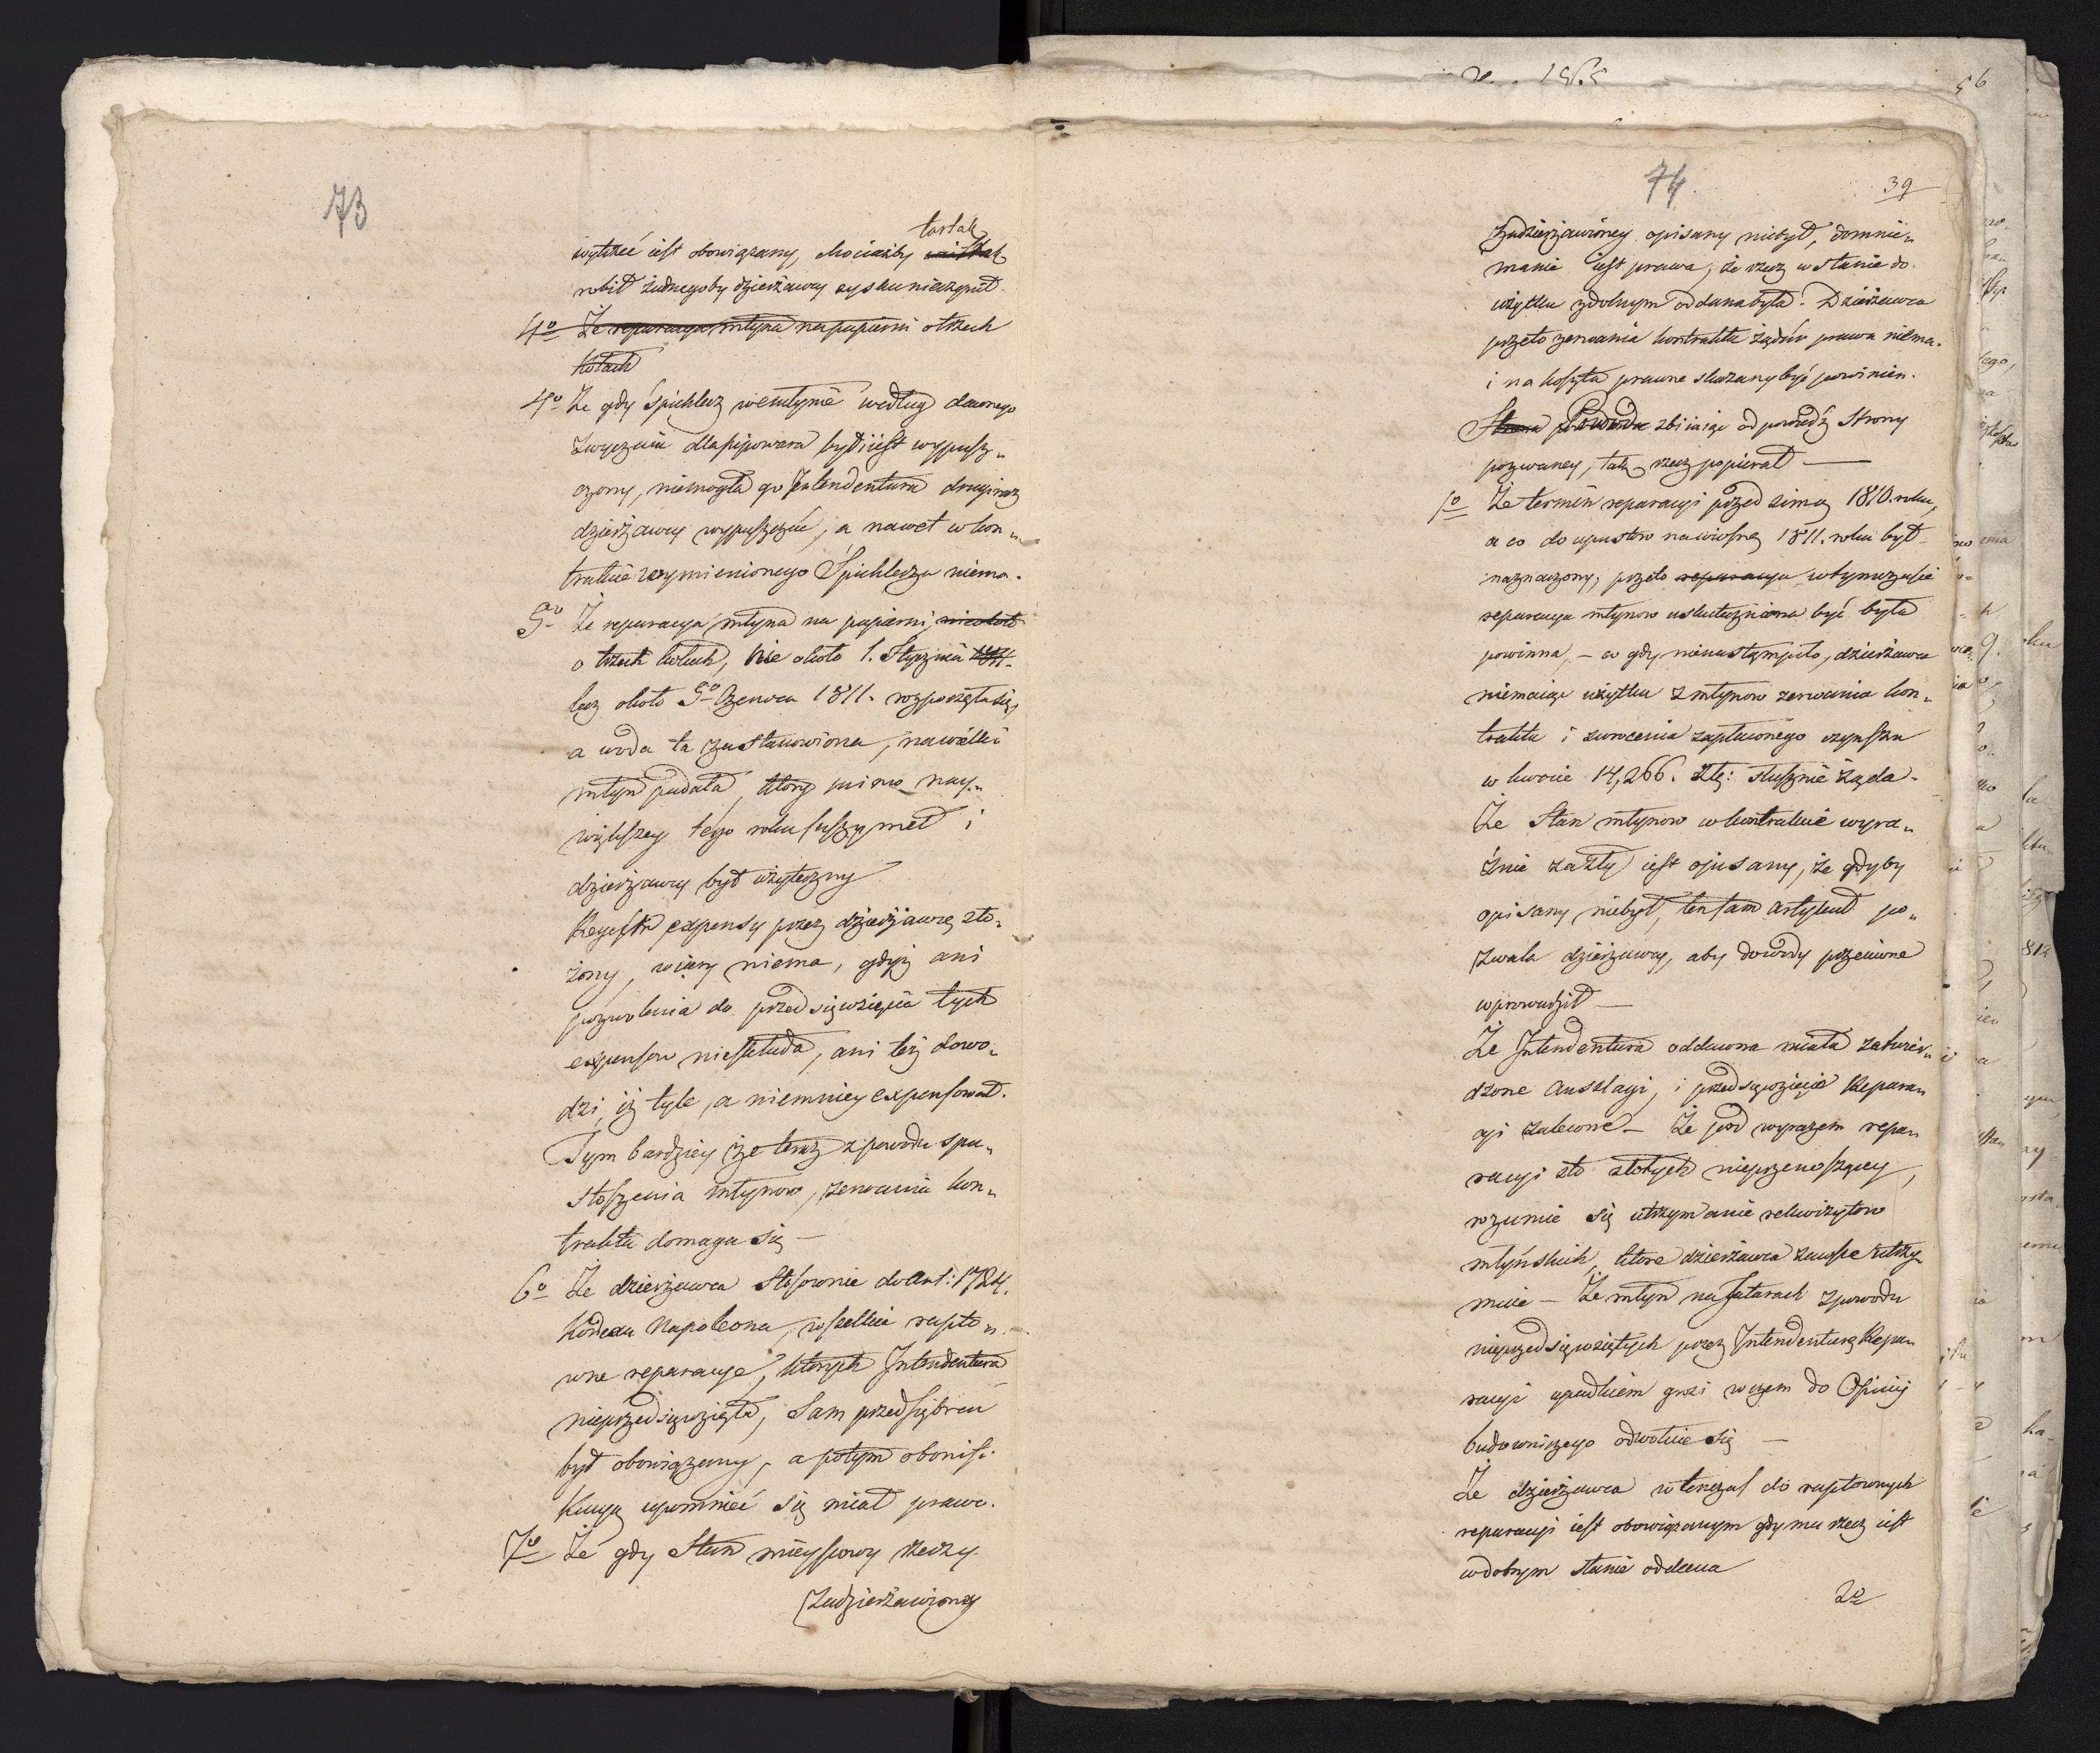 73
tartak
wytrzeć iest obowiązany, chociażby
robił żadnegoby dzierżawcy zysku nieczynił.
4o Że reparacya młyna na papierni o trzech
Kołach
4o Że gdy Śpichlerz we młynie według dawnego
zwyczaiu dla piwowara był i iest wypusz„
czony, niemogła go Intendentura drugi raz
dzierżawcy wypuszczić, a nawet w kon„
trakcie wymienionego Śpichlerza niema.
5o Że reparacya młyna na papierni,
o trzech kołach, nie około 1. Stycznia 1811.
lecz około 5o Czerwca 1811. rozpoczęła się,
a woda ta zastanowiona, na wielki
młyn padała, który mimo nay„
większey tego roku suszy mełł i
dzierżawcy był użyteczny
Regestr expensy przez dzierżawcę zło„
żony, wiary niema, gdyż ani
pozwolenia do przedsięwzięcia tych
expensow nieskłada, ani też dowo„
dzi, iż tyle, a niemniey expensował.
Tym bardziey że teraz z powodu spu„
stoszenia młynow, zerwania kon„
traktu domaga się —
6o Że dzierżawca Stosownie do Art: 1724.
Kodexu Napoleona, wszelkie rapto„
wne reparacye, których Intendentura
nieprzedsięwzięła, Sam przedsiębrać
był obowiązany, a potym o bonifi„
kacyą upomnieć się miał prawo.
7o Że gdy Stan mieyscowy rzeczy
Zadzierżawioney
74.
39
Zadzierżawioney opisany niebył, domnie„
manie iest prawa, że rzecz w stanie do
użytku zdolnym oddana była. Dzierżawca
przeto zerwania kontraktu żądać prawa niema.
i na koszta prawne skazany być powinien.
Strona Powodowa zbiiaiąc odpowiedź Strony
pozwaney, tak rzecz popierał —
1o Że termin reparacyi przed zimą 1810. roku,
a co do upustow na wiosnę 1811. roku był
naznaczony, przeto reparacya w tym czasie
reparacya młynow uskuteczniona być była
powinna, — co gdy nienastąmpiło, dzierżawca
niemaiąc użytku z młynow zerwania kon„
traktu i zwrocenia zapłaconego czynszu
w kwocie 14,266. Złł: słusznie żąda.
Że Stan młynow w kontrakcie wyra„
źnie za zły iest opisany, że gdyby
opisany niebył, ten sam artykuł po„
zwala dzierżawcy, aby dowody przeciwne
wprowadził —
Że Intendentura oddawna miała zatwier„
dzone Anszlagi, i przedsięwzięcie Repara„
cyi zalecone — Że pod wyrazem repa„
racyi sto złotych nieprzenoszącey,
rozumie się utrzymanie rekwizytow
młyńskich, które dzierżawca zawsze utrzy„
muie — Że młyn na Jatarach z powodu
nieprzedsięwziętych przez Intendenturę Repa„
racyi upadkiem grozi w czem do Opinij
budowniczego odwołuie się —
Że dzierżawca wtenczas do raptownych
reparacyi iest obowiązanym gdy mu rzecz iest
w dobrym stanie oddana
2o